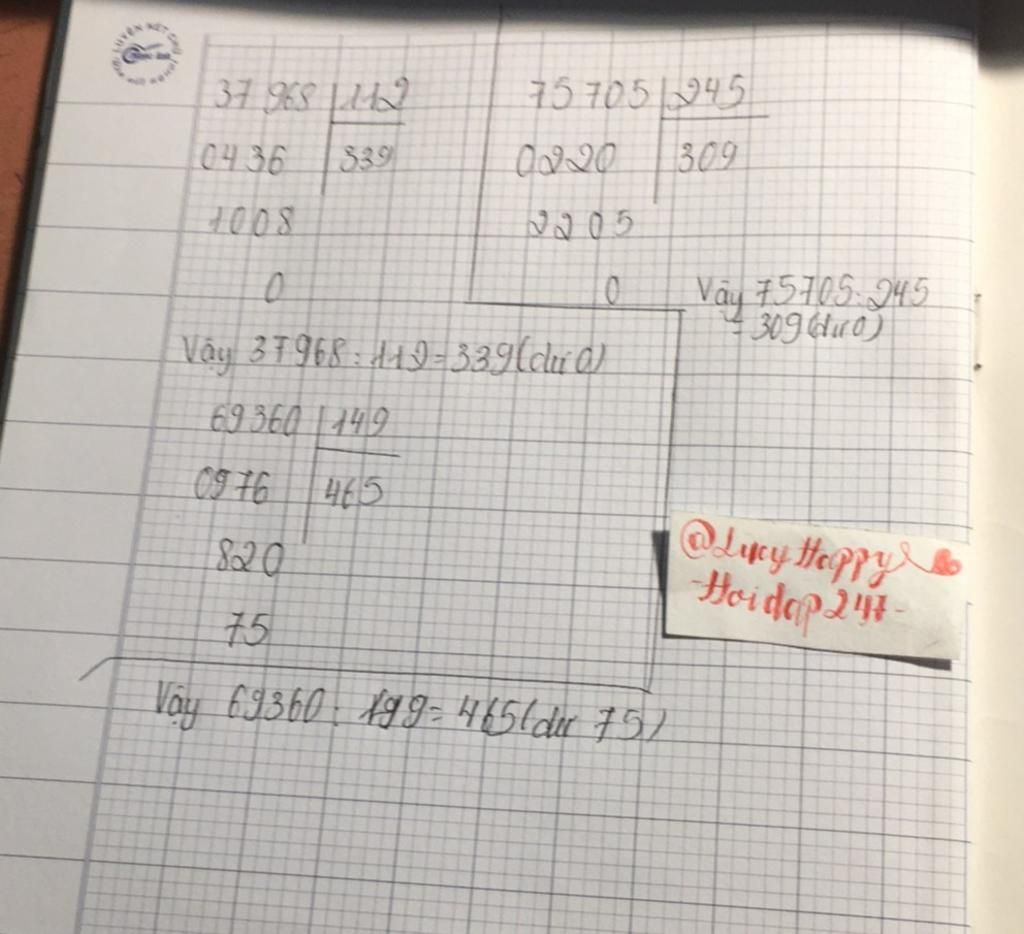 LUYỆN NÉT CHỮ
37968 112
0436 339
1008
0
Vậy 37968 : 112 = 339 (dư 0)
75705 245
0220 309
2205
0
Vậy 75705 : 245
= 309 (dư 0)
69360 149
0976 465
820
75
Vậy 69360 : 149 = 465 (dư 75)
@LucyHappy
-Hoidap247-